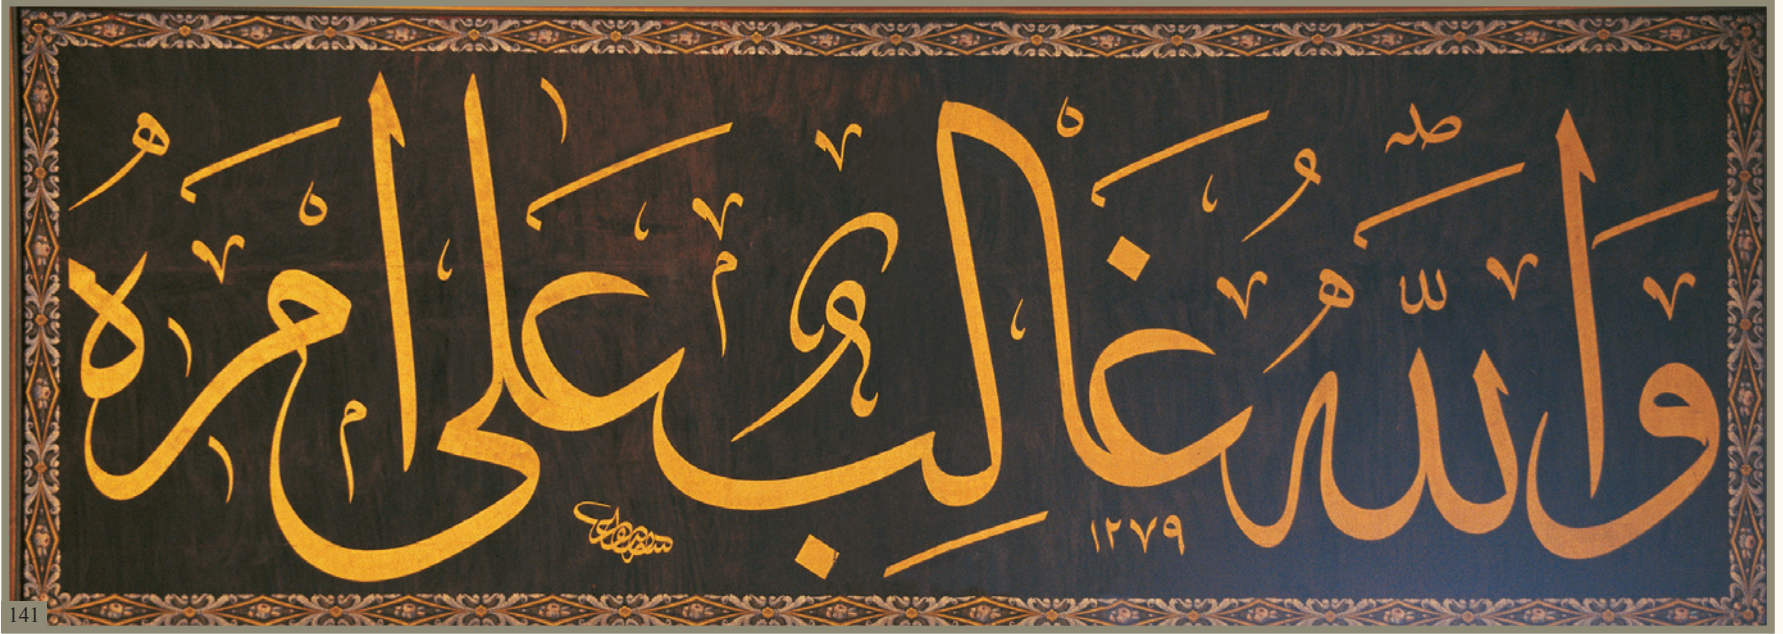 وَاللّٰهُ غَالِبٌ عَلَى اَمْرِهِ
١٢٧٩
141